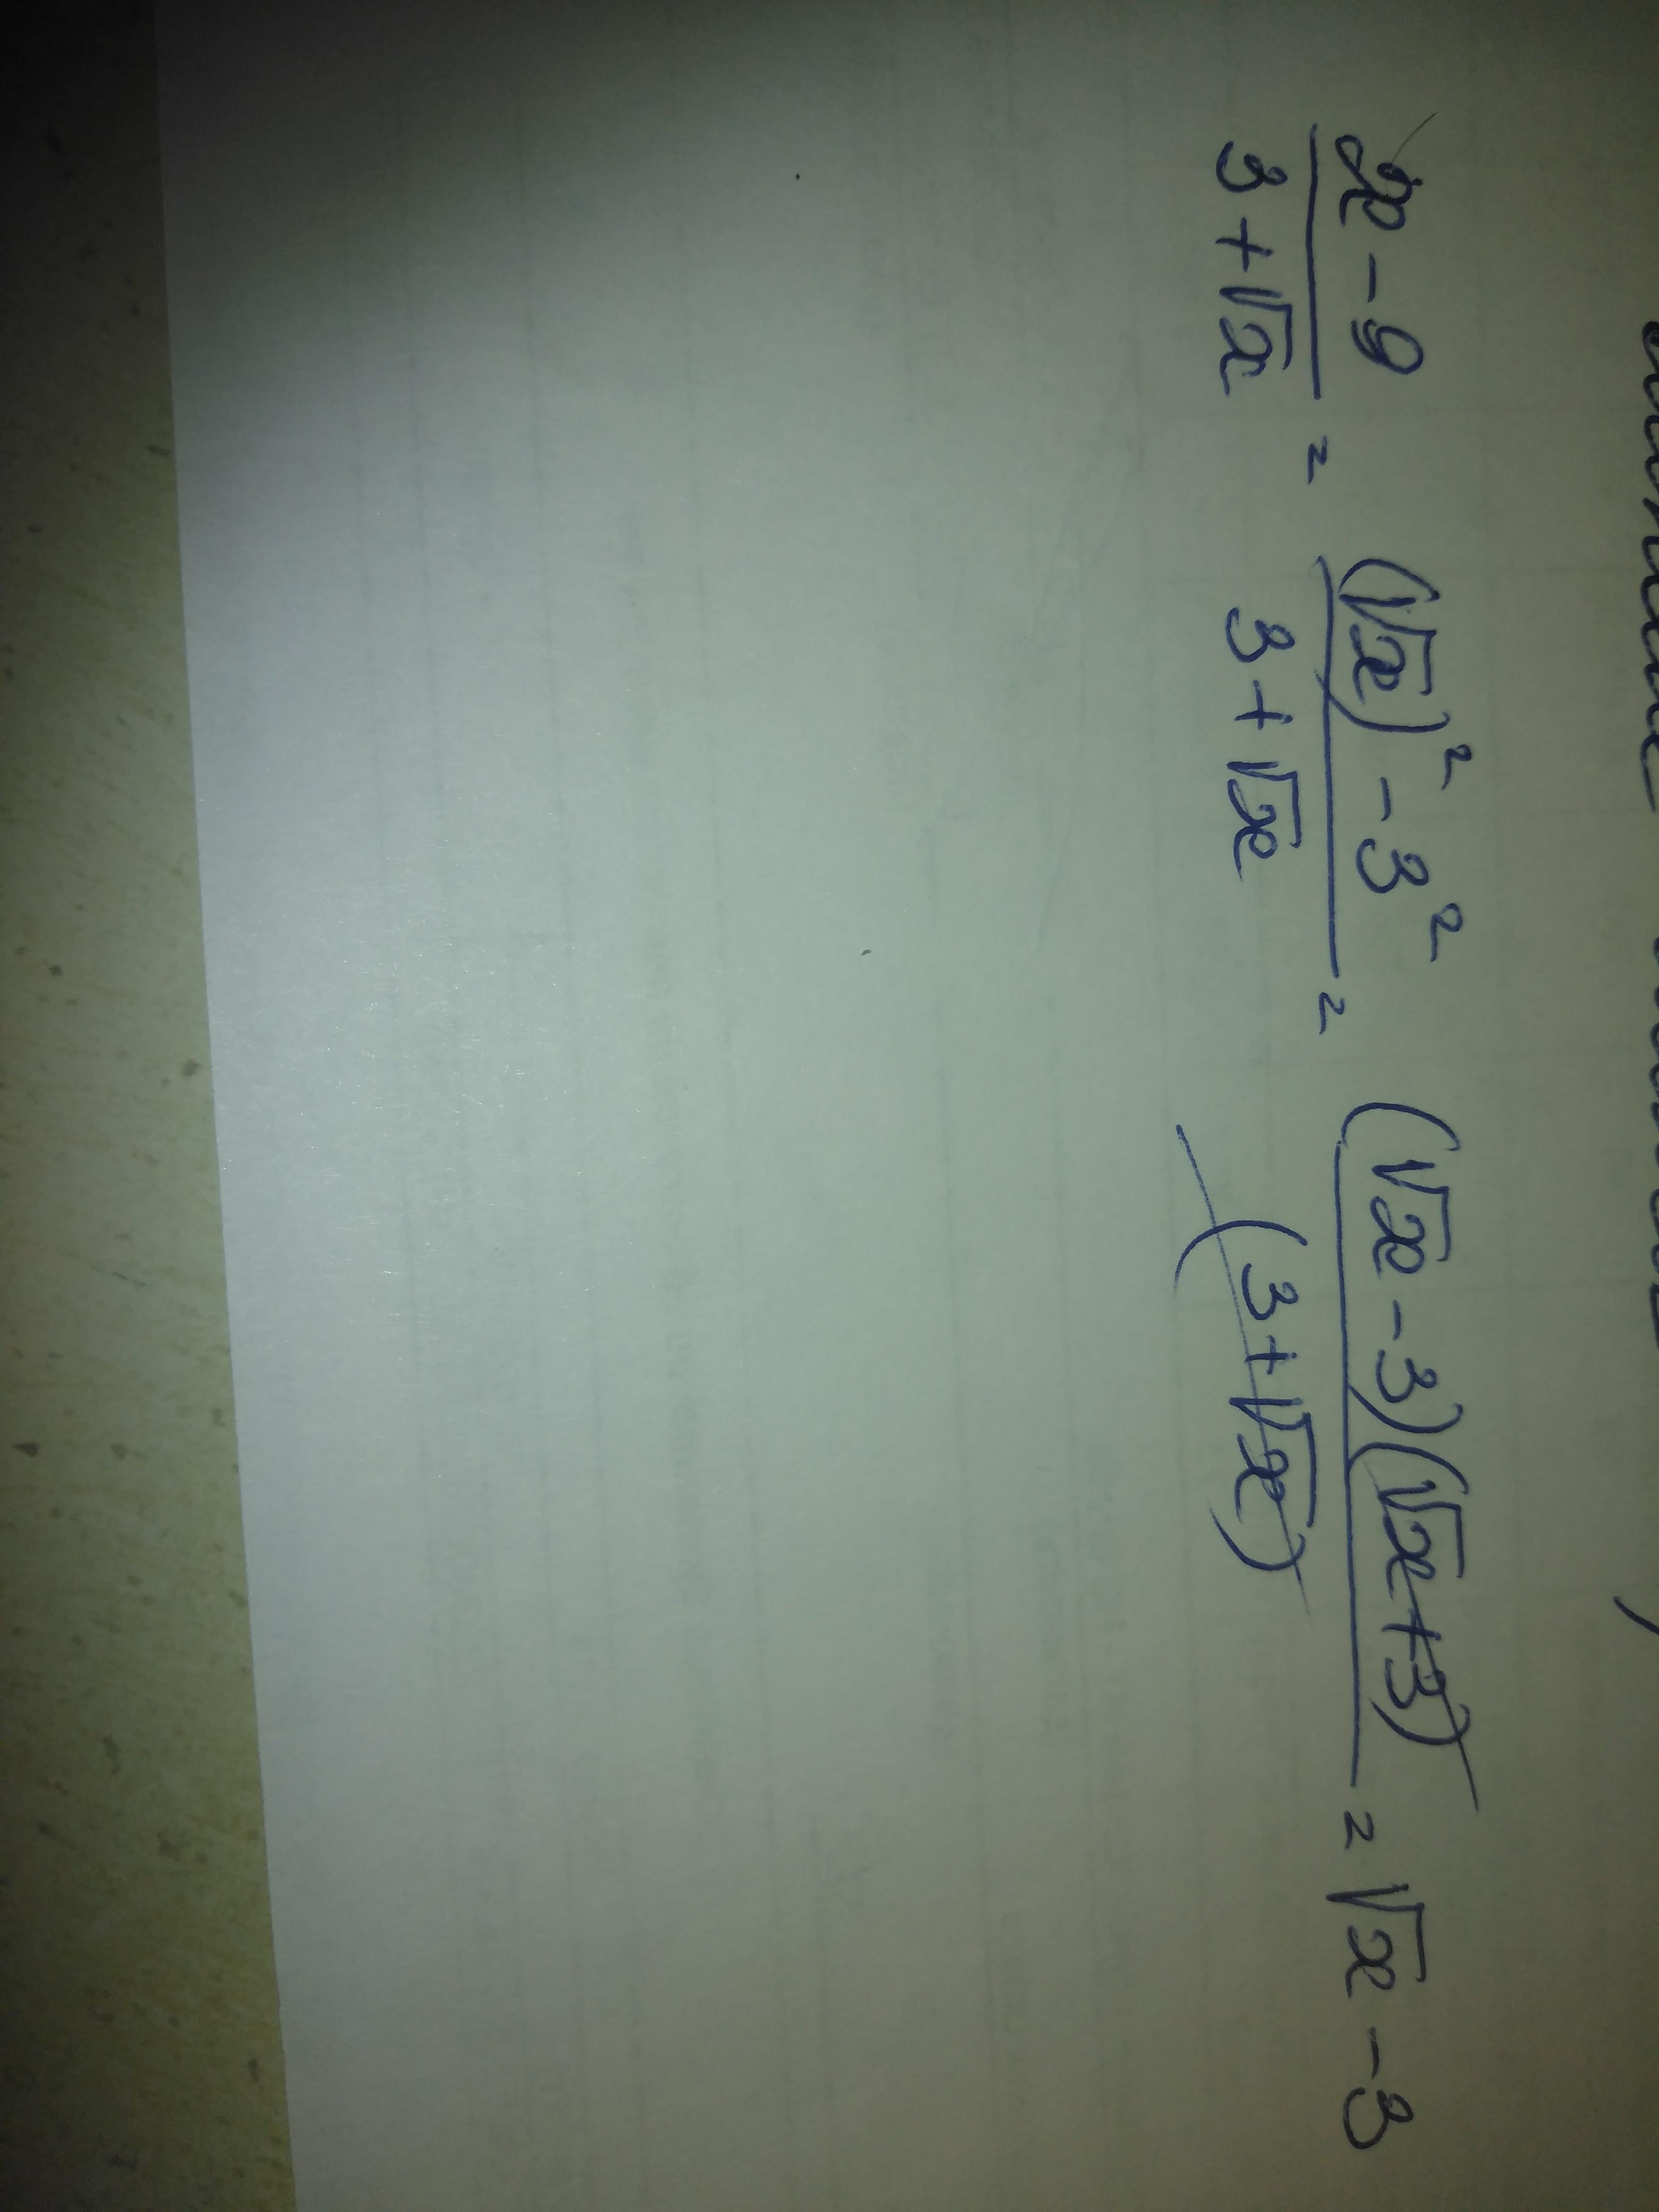 x - 9 / 3 + √x = (√x)² - 3² / 3 + √x = (√x - 3)(√x + 3) / (3 + √x) = √x - 3